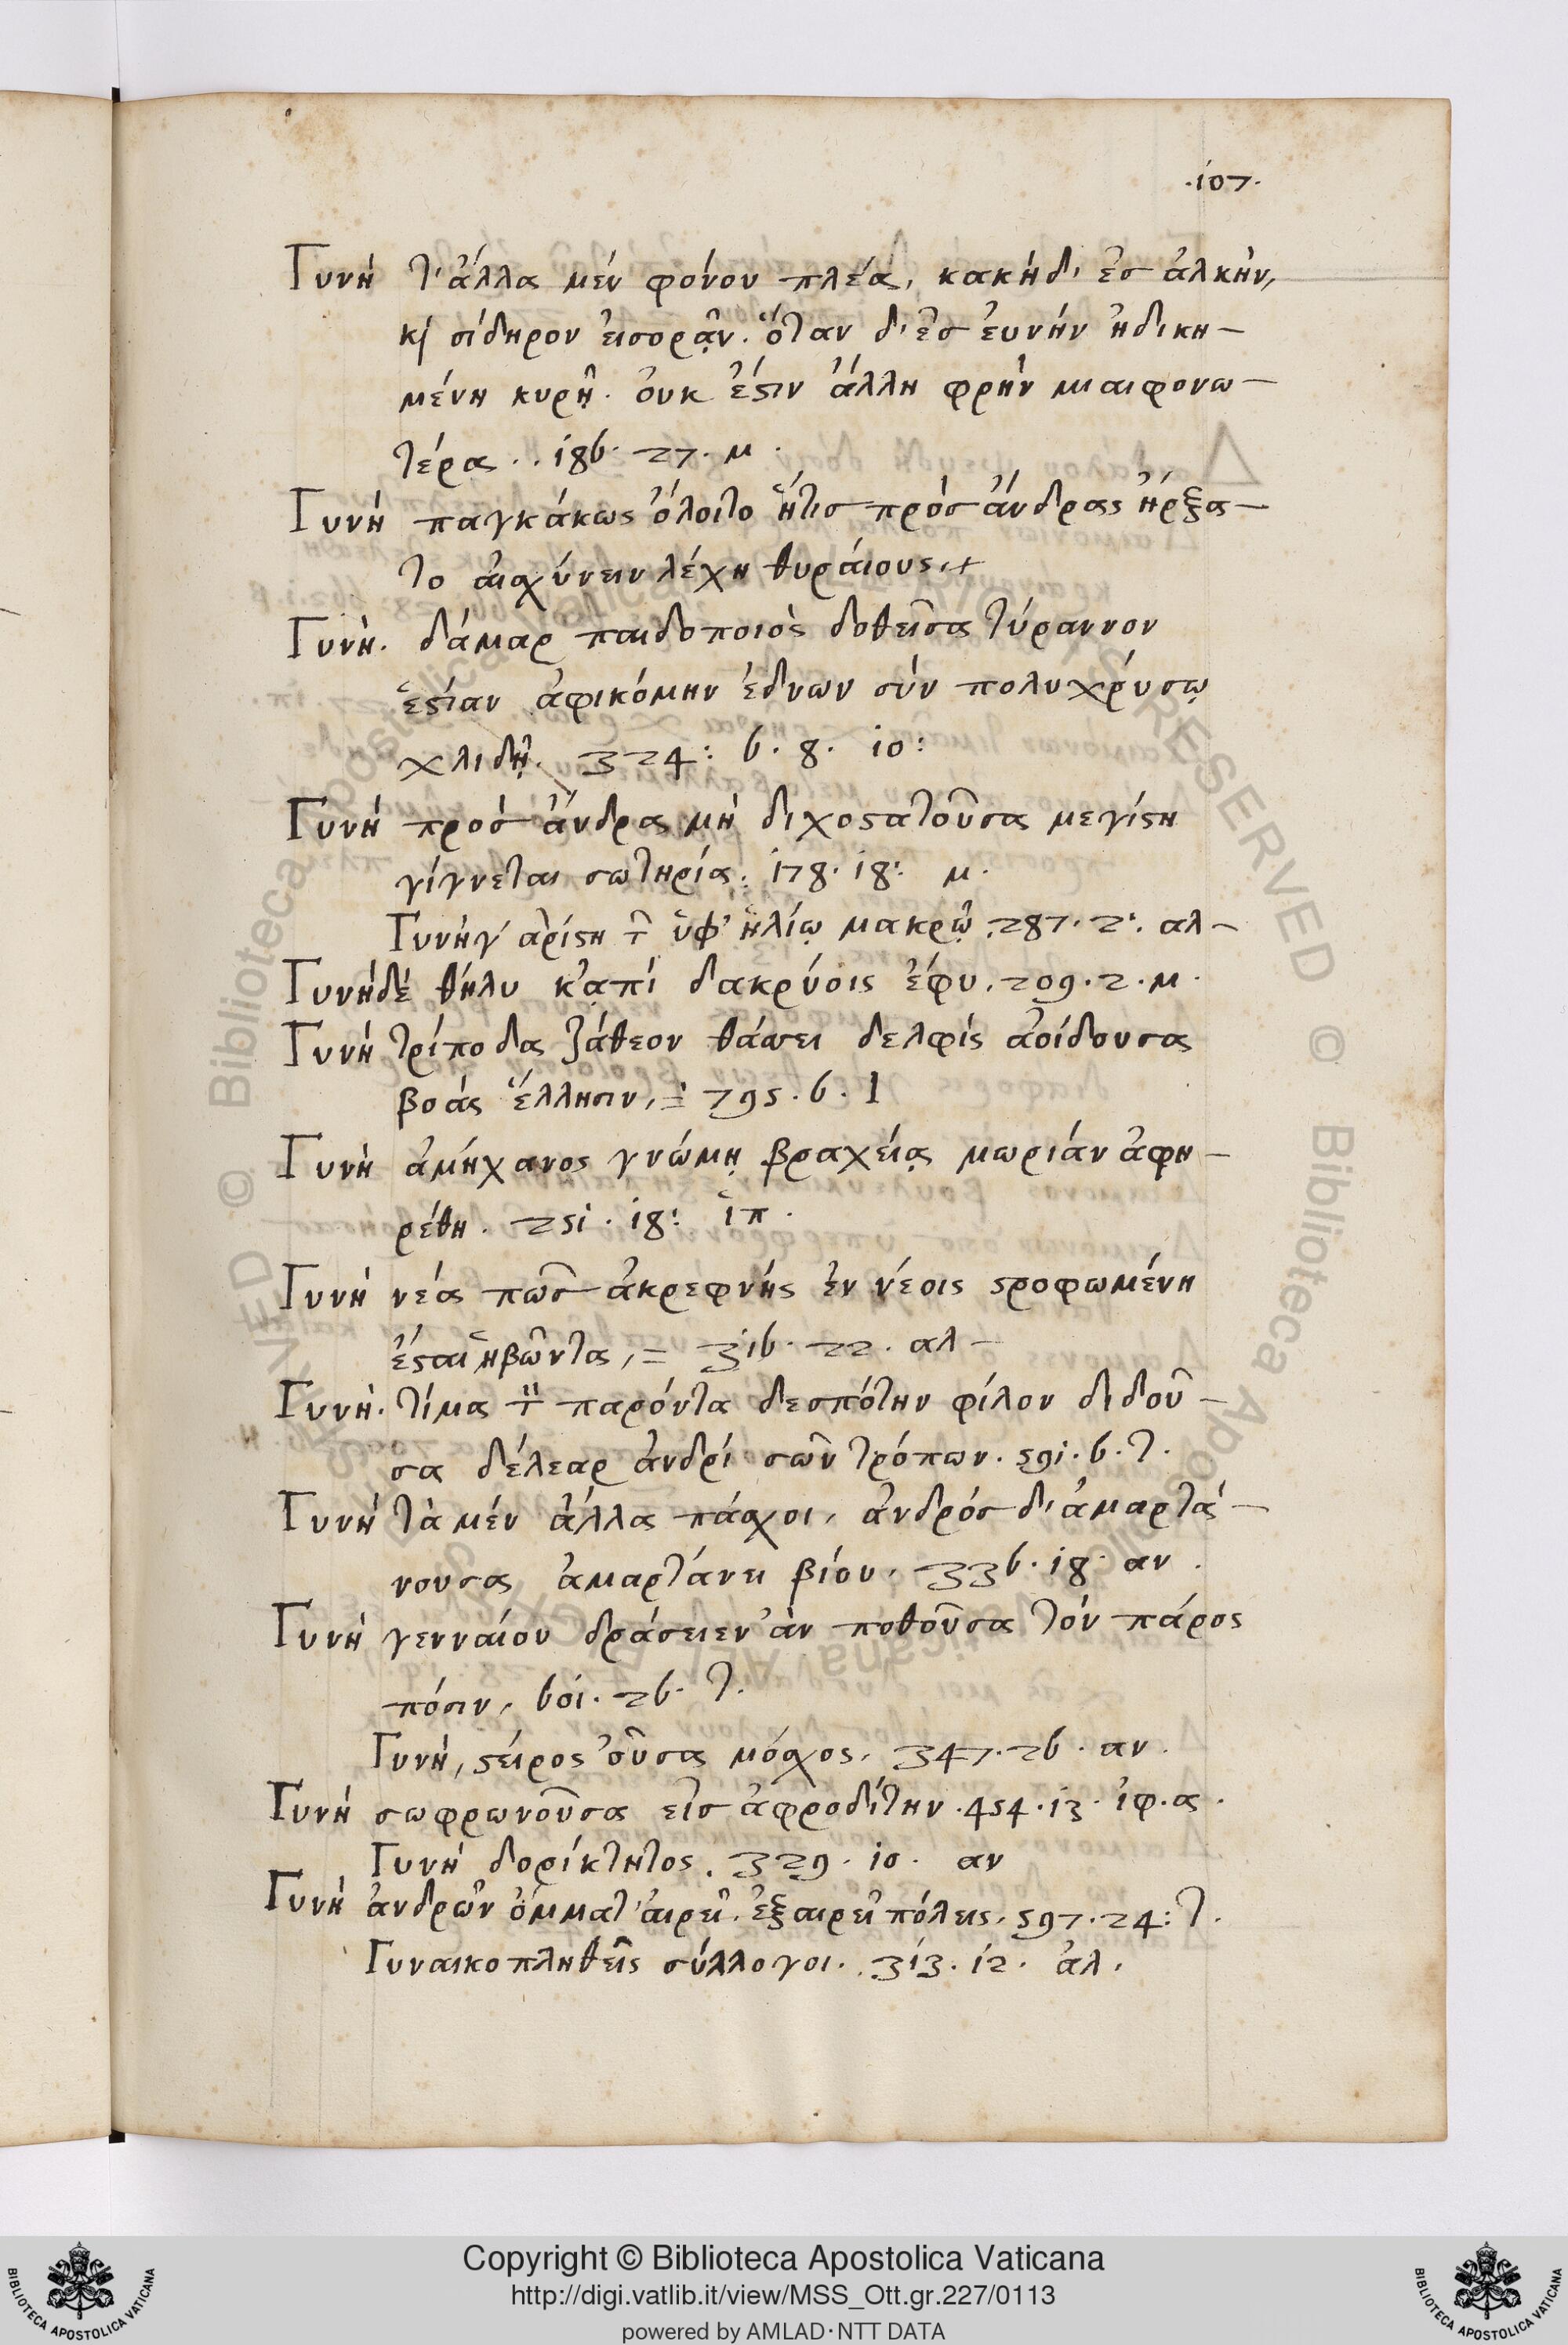 ·107·
Γυνή τ' ἄλλα μέν φόνου πλέα, κακή δ' ἐσ ἀλκήν,
κ σίδηρον εἰσορᾷν. ὅταν δ' ἐσ ἐυνήν ἠδικη-
μένη κυρῇ. ὀυκ ἔϛιν ἄλλη φρήν μιαιφονω-
τέρα.. 186. 27. μ.
Γυνή παγκάκως ὄλοιτο ἥτισ πρόσ ἄνδρας ἤρξα-
το αἰσχύνειν λέχη θυράιους,
Γυνή. δάμαρ παιδοποιὸς δοθεῖσα τύραννον
ἑϛίαν ἀφικόμην ἕδνων σύν πολυχρύσῳ
χλιδῇ. 324: 6. 8. 10:
Γυνή πρόσ ἄνδρα μή διχοϛατοῦσα μεγίϛη
γίγνεται σωτηρία: 178. 18: μ.
Γυνήγ' αρίϛη τ ὑφ' ἡλίῳ μακρῷ. 287. 2. αλ-
Γυνήδέ θήλυ κᾀπί δακρύοις ἔφυ. 209. 2. μ.
Γυνή τρίποδα ζάθεον θάσσει δελφίς ἀοίδουσα
βοάς ἕλλησιν, = 795. 6. Ι
Γυνή ἀμήχανος γνώμῃ βραχείᾳ μωρίαν ἀφῃ-
ρέθη. 251. 18: ἱπ.
Γυνή νέα πῶσ ἀκρεφνής ἐν νέοις ϛροφωμένη
ἔϛαι ἡβῶντα, = 316. 22. αλ-
Γυνή. τίμα τ παρόντα δεσπότην φίλον διδοῦ-
σα δέλεαρ ἀνδρί σῶν τρόπων. 591. 6. τ.
Γυνή τὰ μέν ἄλλα πάσχοι, ἀνδρόσ δ' ἁμαρτά-
νουσα ἁμαρτάνει βίου. 336. 18. αν.
Γυνή γενναίου δράσειεν ἀν ποθοῦσα τόν πάρος
πόσιν, 601. 26. τ.
Γυνή, ϛείρος οὖσα μόσχος. 347. 26. αν.
Γυνή σωφρωνοῦσα εἰσ ἀφροδίτην. 454. 13. ἰφ. α.
Γυνή δορίκτητος. 329. 10. αν
Γυνή ἀνδρῶν ὄμματ' ἁιρεῖ. ἐξαιρεῖ πόλεις. 597. 24: τ.
Γυναικοπληθεῖς σύλλογοι. 313. 12. ἀλ.
Copyright © Biblioteca Apostolica Vaticana
http://digi.vatlib.it/view/MSS_Ott.gr.227/0113
powered by AMLAD·NTT DATA